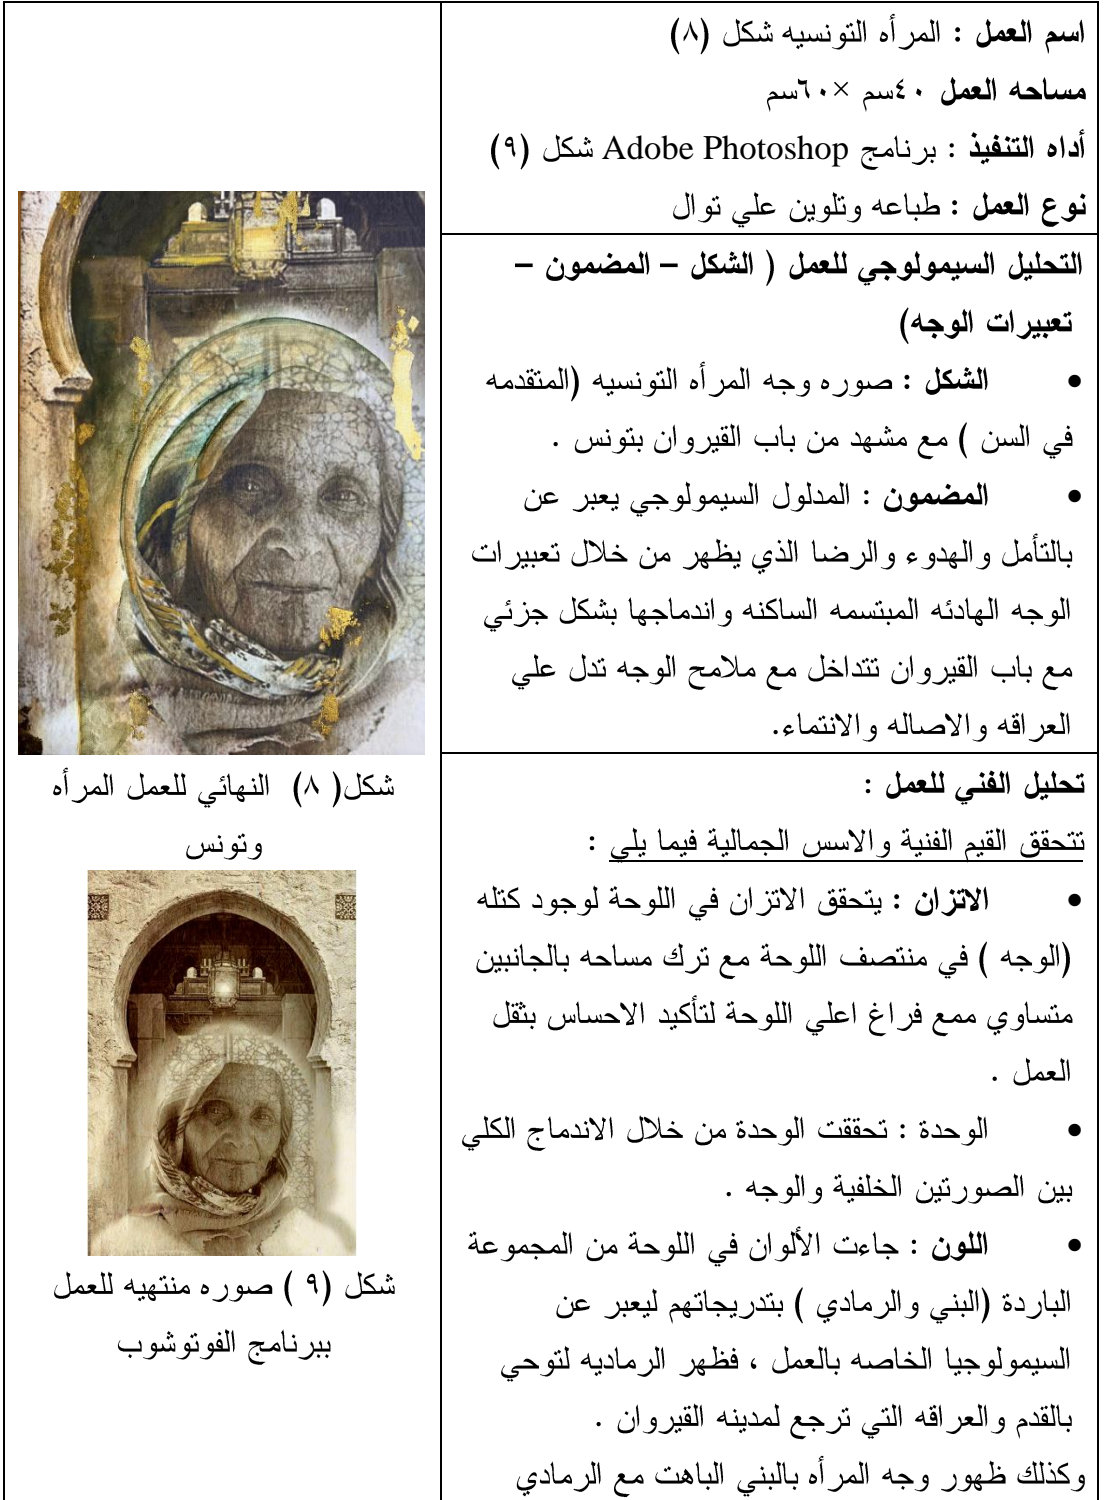 اسم العمل : المرأه التونسيه شكل (٨)
مساحه العمل ٤٠سم ×٦٠سم
أداه التنفيذ : برنامج Adobe Photoshop شكل (٩)
نوع العمل : طباعه وتلوين علي توال
التحليل السيمولوجي للعمل ( الشكل – المضمون –
تعبيرات الوجه)
• الشكل : صوره وجه المرأه التونسيه (المتقدمه
في السن ) مع مشهد من باب القيروان بتونس .
• المضمون : المدلول السيمولوجي يعبر عن
بالتأمل والهدوء والرضا الذي يظهر من خلال تعبيرات
الوجه الهادئه المبتسمه الساكنه واندماجها بشكل جزئي
مع باب القيروان تتداخل مع ملامح الوجه تدل علي
العراقه والاصاله والانتماء.
تحليل الفني للعمل :
تتحقق القيم الفنية والاسس الجمالية فيما يلي :
• الاتزان : يتحقق الاتزان في اللوحة لوجود كتله
(الوجه ) في منتصف اللوحة مع ترك مساحه بالجانبين
متساوي ممع فراغ اعلي اللوحة لتأكيد الاحساس بثقل
العمل .
• الوحدة : تحققت الوحدة من خلال الاندماج الكلي
بين الصورتين الخلفية والوجه .
• اللون : جاءت الألوان في اللوحة من المجموعة
الباردة (البني والرمادي ) بتدريجاتهم ليعبر عن
السيمولوجيا الخاصه بالعمل ، فظهر الرماديه لتوحي
بالقدم والعراقه التي ترجع لمدينه القيروان .
وكذلك ظهور وجه المرأه بالبني الباهت مع الرمادي
شكل( ٨) النهائي للعمل المرأه
وتونس
شكل (٩ ) صوره منتهيه للعمل
ببرنامج الفوتوشوب